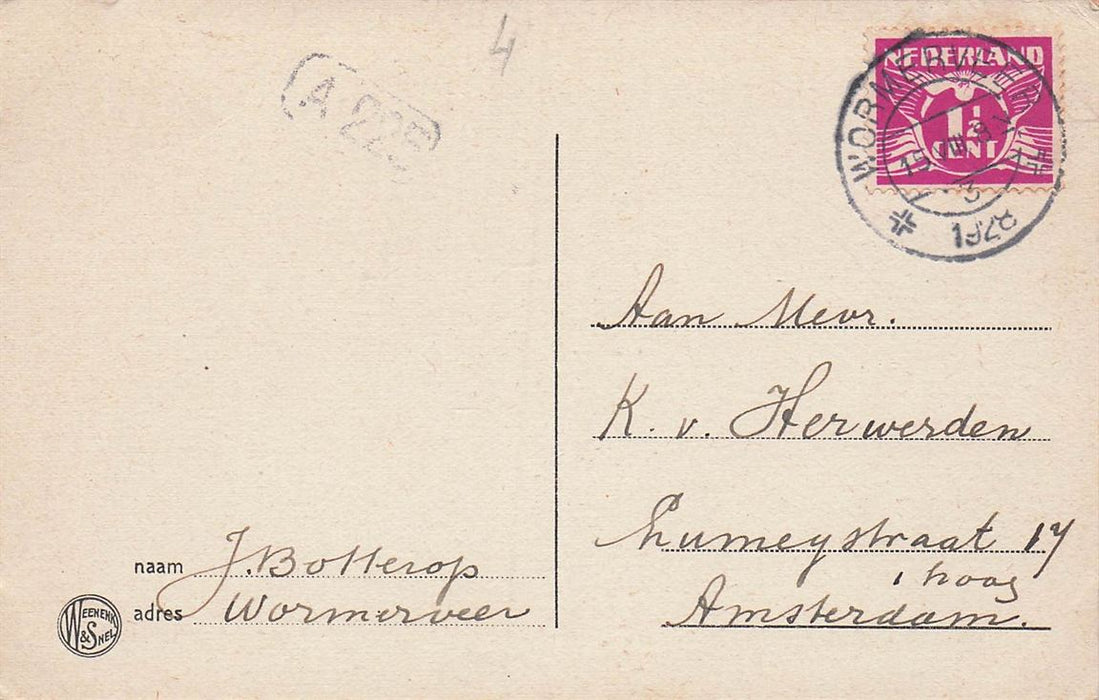 4
A 225
NEDERLAND
1½
CENT
WORMERVEER
1927
Aan Mevr.
K. v. Herwerden
Lumeystraat 17
1 hoog
Amsterdam.
naam J. Botterop
adres Wormerveer
WEENENK
& SNEL